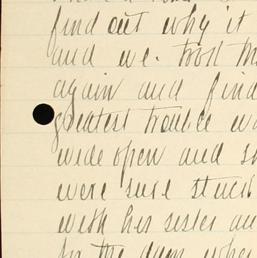 find out why it
and we took the
again and find
greatest trouble wa
wide open and s
were sure stuck
with her sister an
for the dam whe